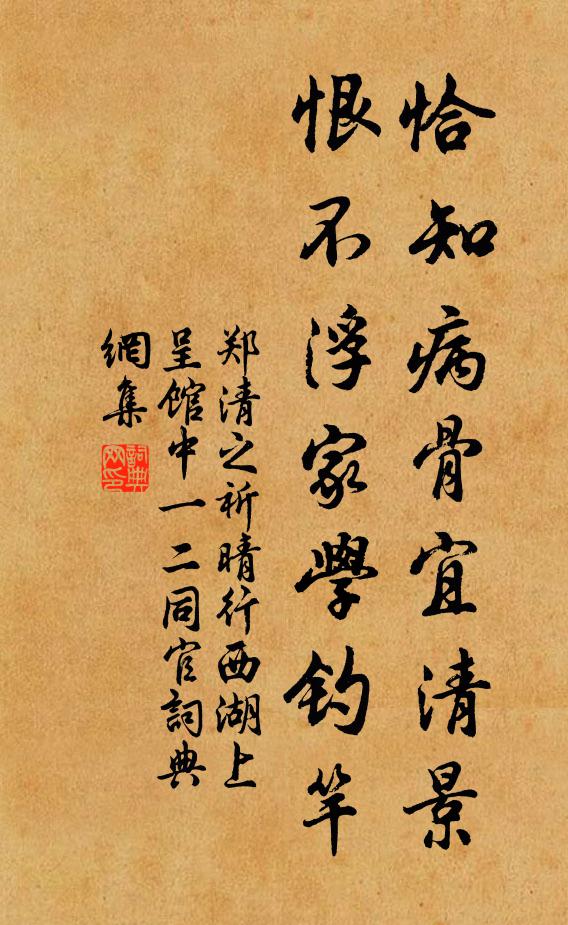 恰知病骨宜清景
恨不浮家學钓竿
郑清之祈晴行西湖上
呈馆中一二同官詞典
網集
詞典
網印